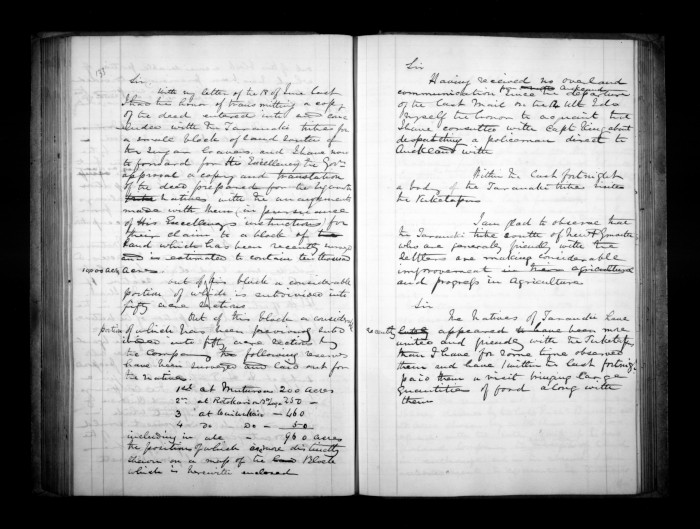 135
Sir
With my letter of the of June last
I had the honor of transmitting a copy
of the deed entered into and con
cluded with the Taranaki tribes for
a small block of land south of
the Sugar Loaves, and I have now
to forward for His Excellency the Govrs
approval a copy and translation
of the deed prepared for the
natives with the arrangements
made with them, in pursuance
of His Excellency's instructions, for
their claim to a block of
land which has been recently
and is estimated to contain ten thousand
10,000 acres acres.
out of this block a considerable
portion of which is subdivided into
fifty acre sections
Out of this block a consider
portion of which has been previously subd
ivided into fifty acre sections by
the Company the following reserves
have been surveyed and laid out for
the natives
1st at 200 acres
2nd at 250 -
3 at - 460
4 Do Do - 50
including in all - 960 acres
the position of which is more distinctly
shewn on a map of the Block
which is herewith enclosed
Sir
Having received no overland
communication since the departure
of the last Mail on the Ult I do
myself the honor to acquaint that
I have committed with Capt King about
despatching a policeman direct to
Auckland with
Within the last fortnight
a body of the Taranaki tribe
the Puketapu
I am glad to observe that
the Taranaki tribe south of New P
who are generally friendly with the
settlers are making considerable
improvement in their agricultural
and progress in Agriculture
Sir
The Natives of Taranaki have
recently lately appeared to have been more
united and friendly with the
than I have for some time observed
them and have within the last fortnight
paid them a visit bringing large
quantities of food along with
them